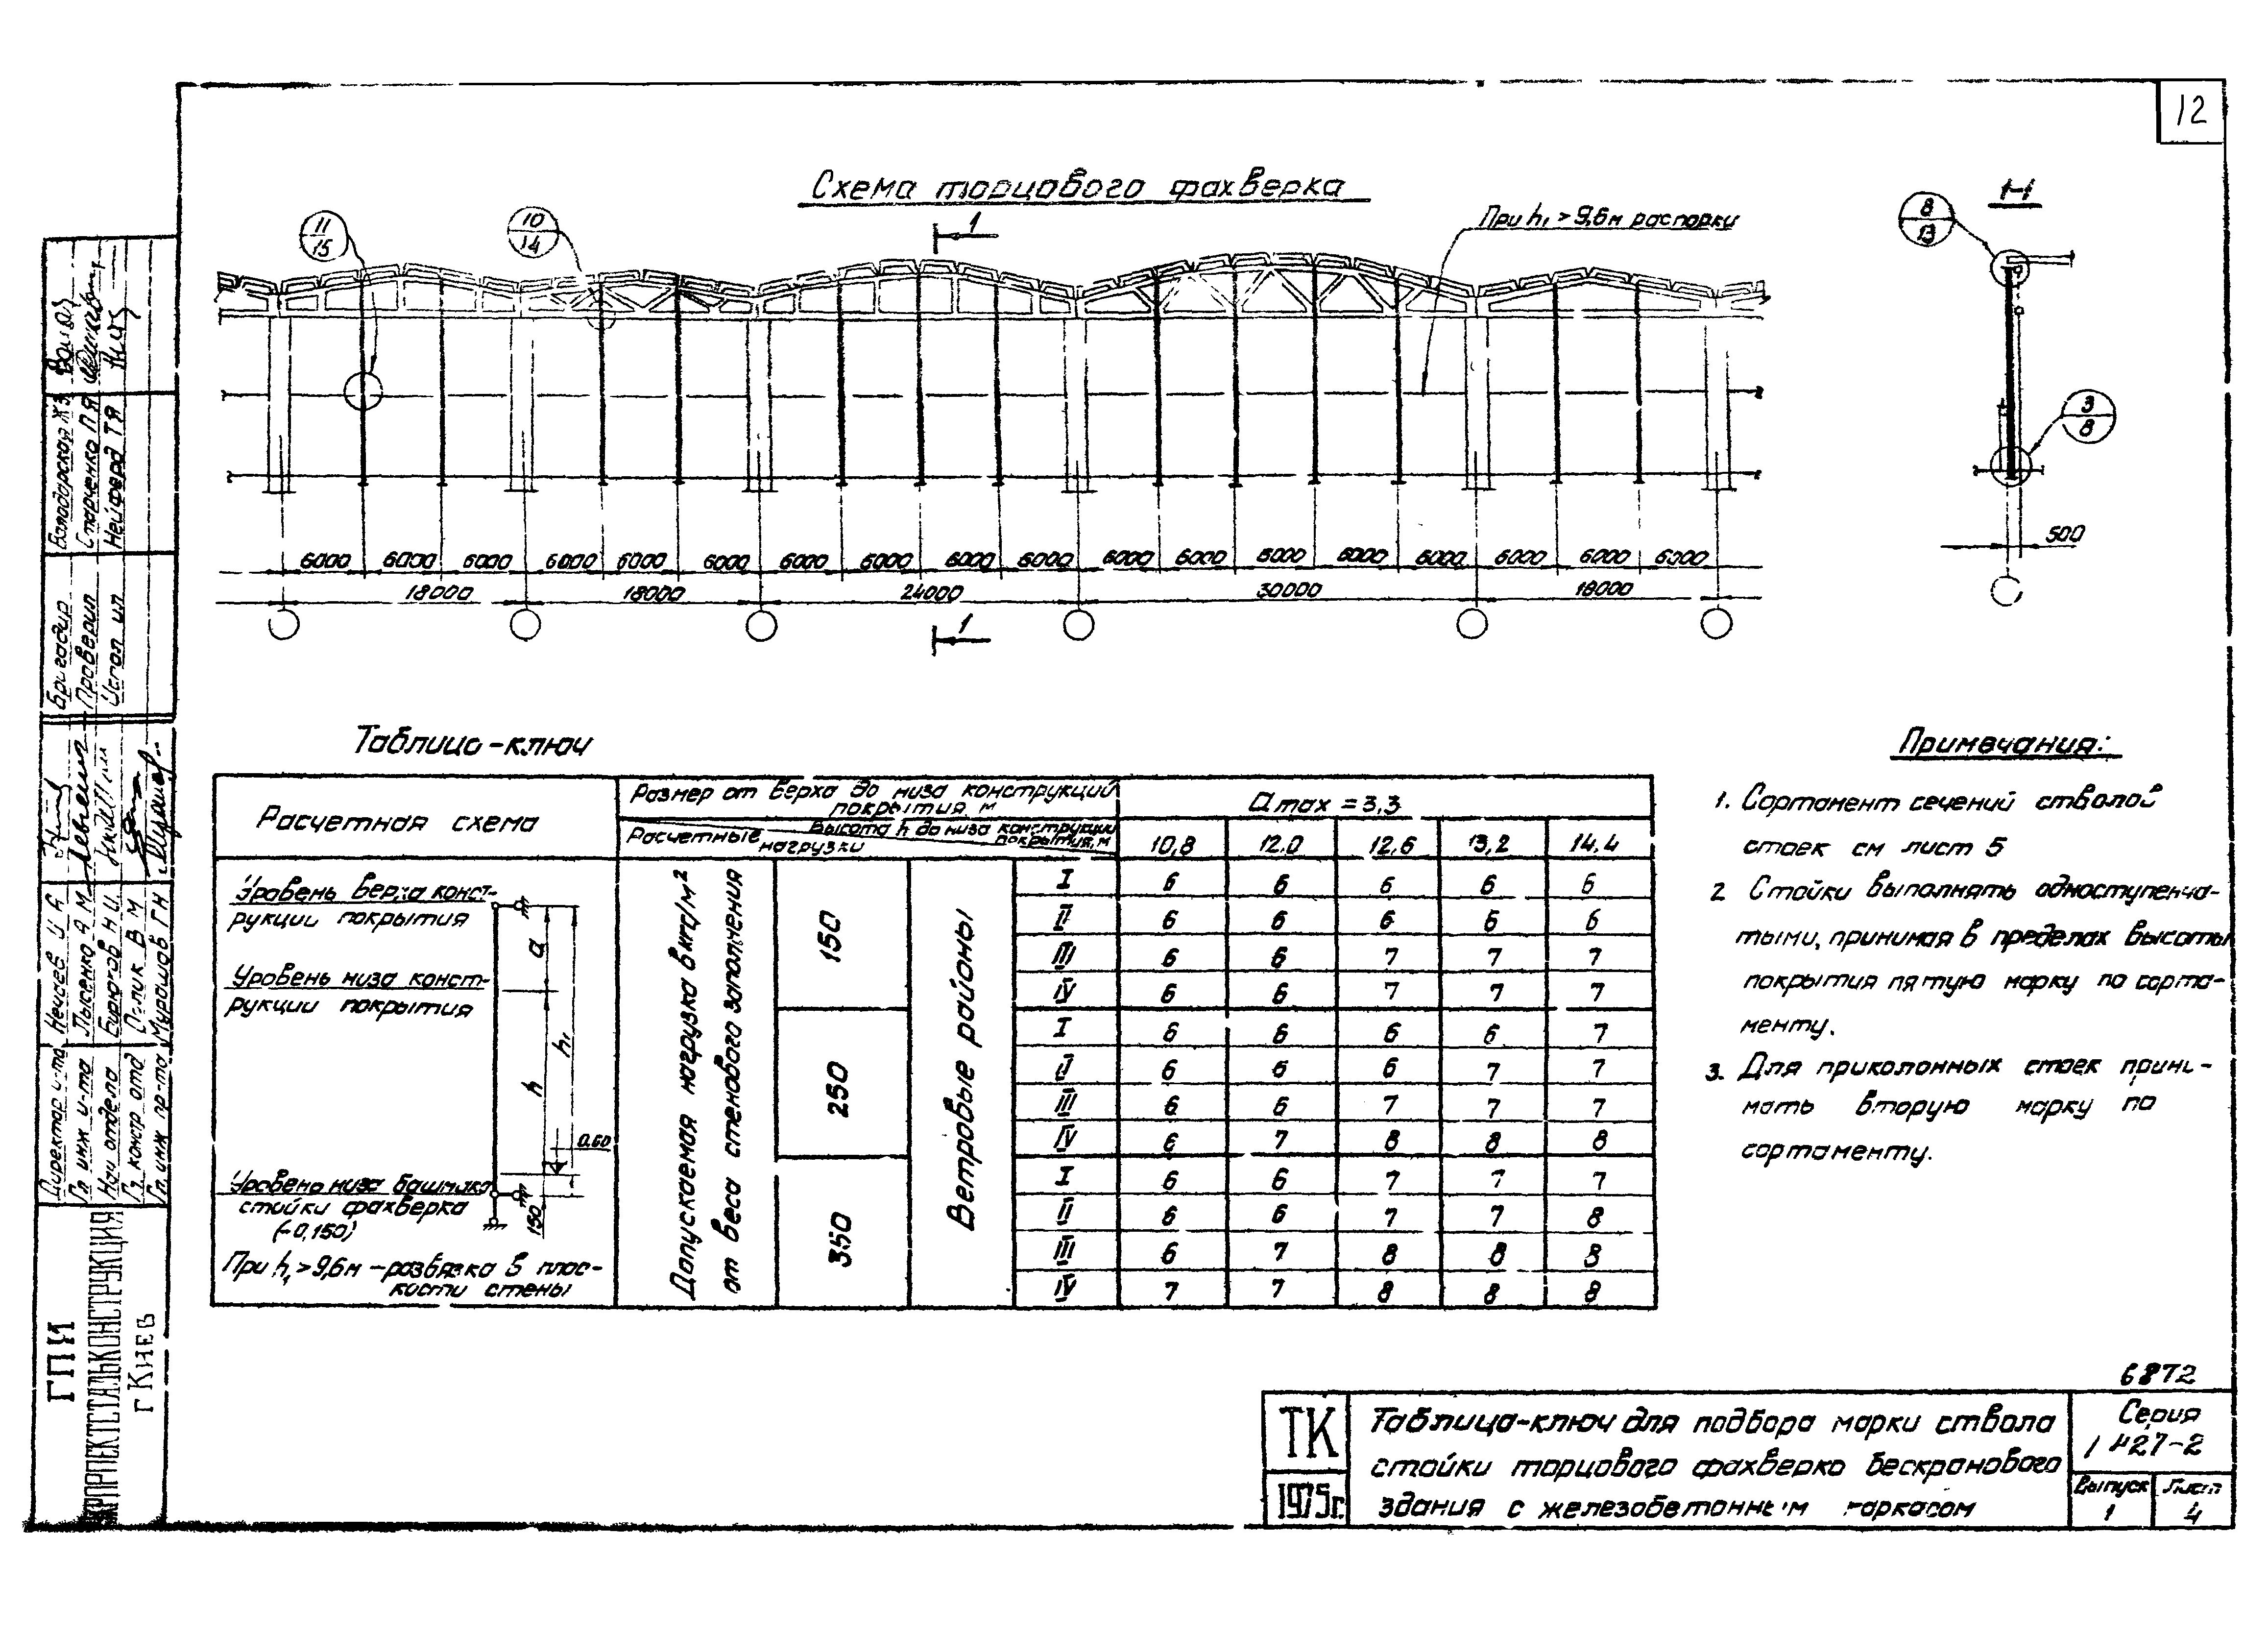 12
Схема торцового фахверка
11
15
10
14
1
При h₁ > 9,6м распорки
1-1
8
13
3
8
500
6000 6000 6000 6000 6000 6000 6000 6000 6000 6000 6000 6000 6000 6000 6000 6000 6000 6000
18000 18000 24000 30000 18000
1
Таблица-ключ
Расчетная схема
Размер от верха до низа конструкций
покрытия, м
a max = 3,3
Высота h до низа конструкции
покрытия, м
Расчетные
нагрузки
10,8 12,0 12,6 13,2 14,4
Уровень верха конст-
рукции покрытия
Уровень низа конст-
рукции покрытия
a
h
h₁
0.60
Уровень низа башмака
стойки фахверка
(-0,150)
150
При h₁ > 9,6м – развязка в плос-
кости стены
Допускаемая нагрузка в кгс/м²
от веса стенового заполнения
Ветровые районы
150
I 6 6 6 6 6
II 6 6 6 6 6
III 6 6 7 7 7
IV 6 6 7 7 7
250
I 6 6 6 6 7
II 6 6 6 7 7
III 6 6 7 7 7
IV 6 7 8 8 8
350
I 6 6 7 7 7
II 6 6 7 7 8
III 6 7 8 8 8
IV 7 7 8 8 8
Примечания:
1. Сортамент сечений стволов
стоек см лист 5
2 Стойки выполнять одноступенча-
тыми, принимая в пределах высоты
покрытия пятую марку по сорта-
менту.
3. Для приколонных стоек прини-
мать вторую марку по
сортаменту.
6872
ТК
1975г.
Таблица-ключ для подбора марки ствола
стойки торцового фахверка бескранового
здания с железобетонным каркасом
Серия
1 427-2
Выпуск
1
Лист
4
Бригадир Володарская Ж З
Проверил Старченко П Я
Исполнил Нейферд Т Я
Директор и-та
Гл инж и-та Лысенко А М
Нач отдела Бирюков Н И
Гл констр отд В М
Гл. инж пр-та Мурашов Г Н
ГПИ
УКРПРОЕКТСТАЛЬКОНСТРУКЦИЯ
г Киев